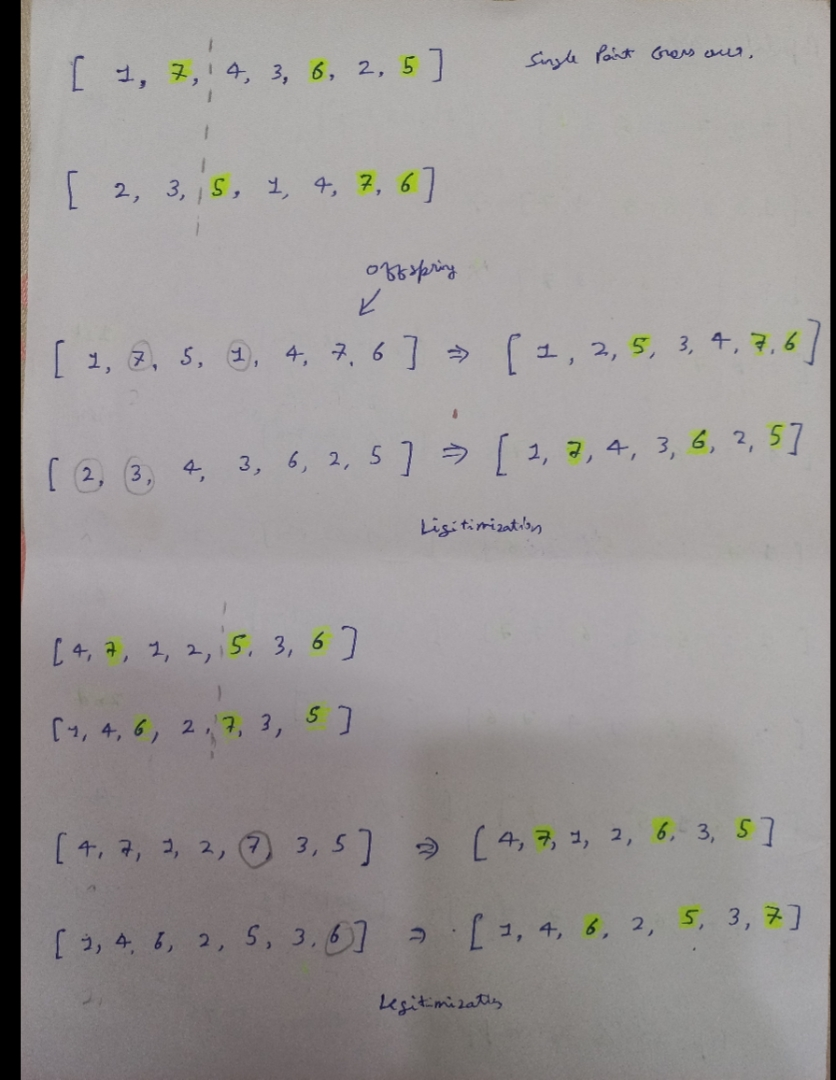 [ 1, 7, 4, 3, 6, 2, 5 ] Single Point Cross over.
[ 2, 3, 5, 1, 4, 7, 6 ]
offspring
[ 1, 7, 5, 1, 4, 7, 6 ] ⇒ [ 1, 2, 5, 3, 4, 7, 6 ]
[ 2, 3, 4, 3, 6, 2, 5 ] ⇒ [ 1, 7, 4, 3, 6, 2, 5 ]
Ligitimization
[ 4, 7, 1, 2, 5, 3, 6 ]
[ 1, 4, 6, 2, 7, 3, 5 ]
[ 4, 7, 1, 2, 7, 3, 5 ] ⇒ [ 4, 7, 1, 2, 6, 3, 5 ]
[ 1, 4, 6, 2, 5, 3, 6 ] ⇒ [ 1, 4, 6, 2, 5, 3, 7 ]
Legitimization